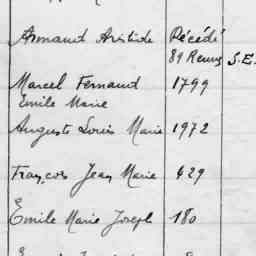 Armand Aristide Décédé
89 Rennes S.E.
Marcel Fernand 1799
Emile Marie
Auguste Louis Marie 1972
François Jean Marie 429
Emile Marie Joseph 180